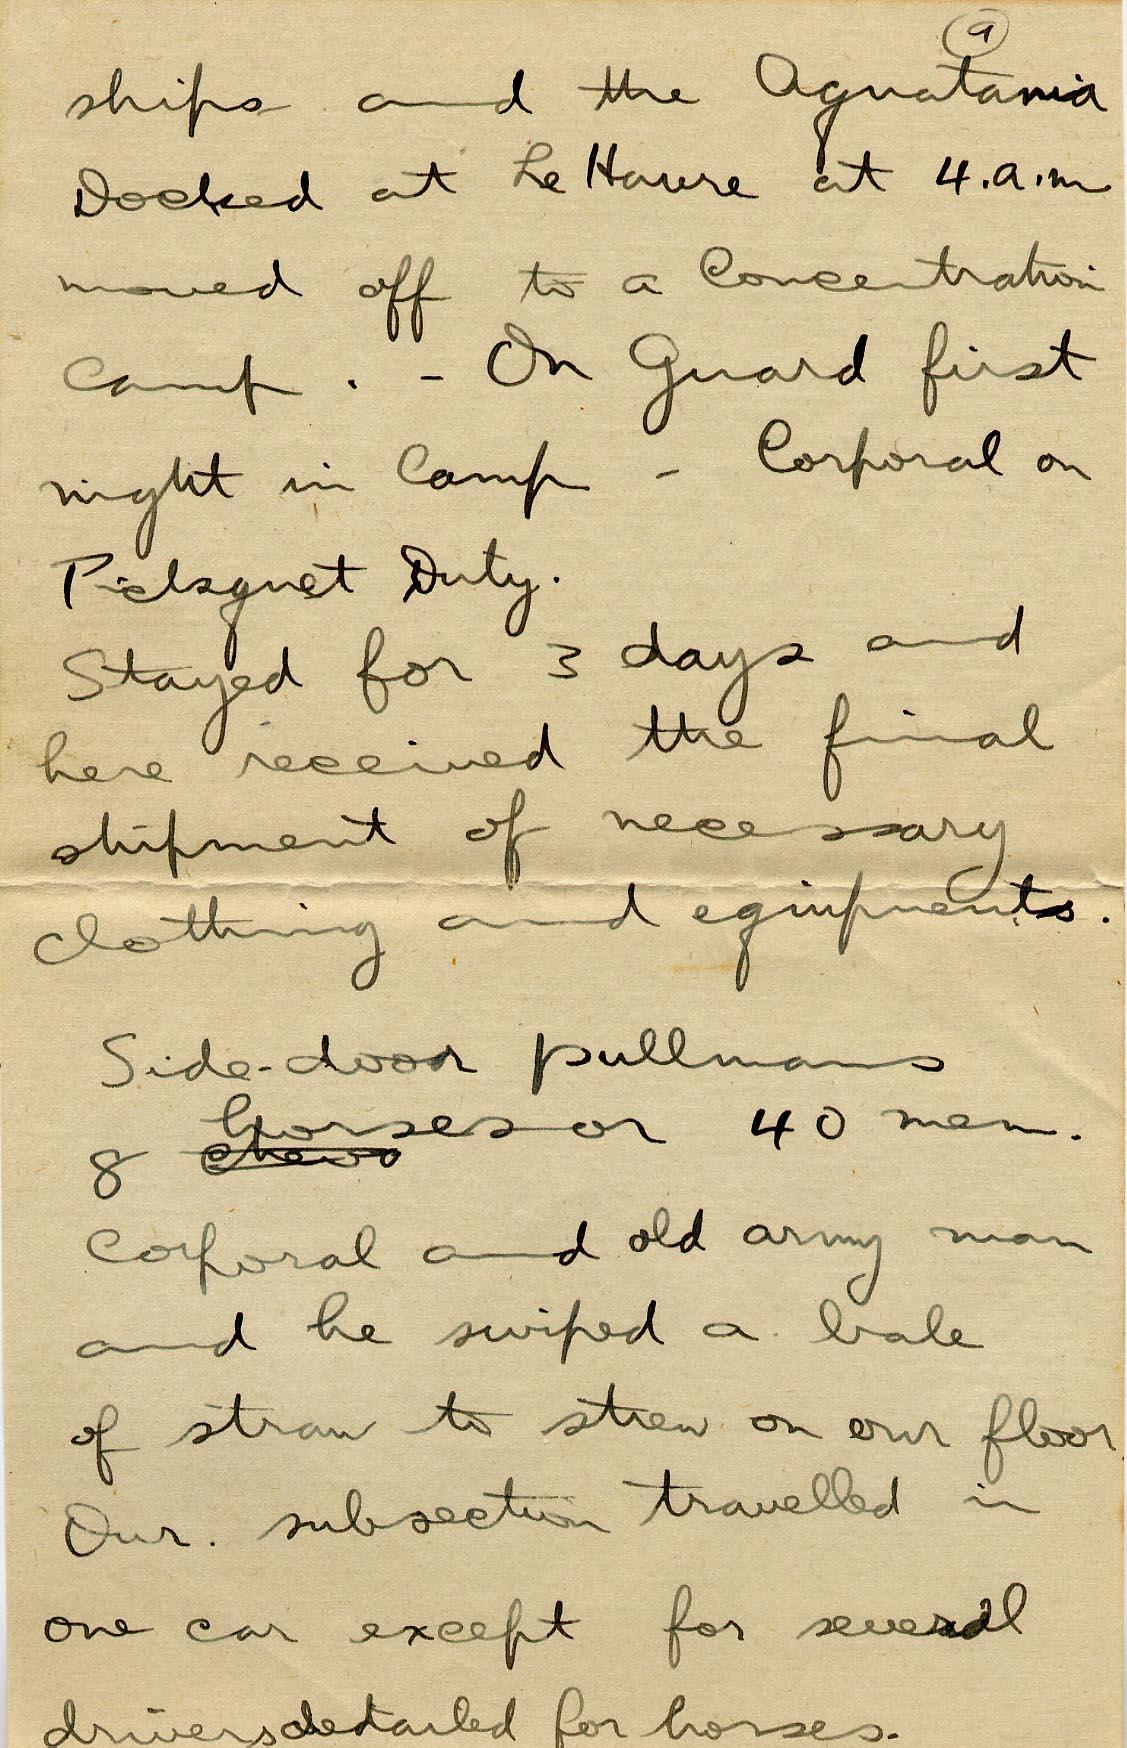 9
ships and the Aquatania
Docked at Le Havre at 4.a.m
moved off to a Concentration
Camp. - On Guard first
night in Camp - Corporal on
Picksquet Duty.
Stayed for 3 days and
here received the final
shipment of necessary
clothing and equipments.
Side-door pullmans
8 chevs horses or 40 men.
Corporal and old army man
and he swiped a bale
of straw to strew on our floor
Our. subsection travelled in
one car except for several
drivers detailed for horses.